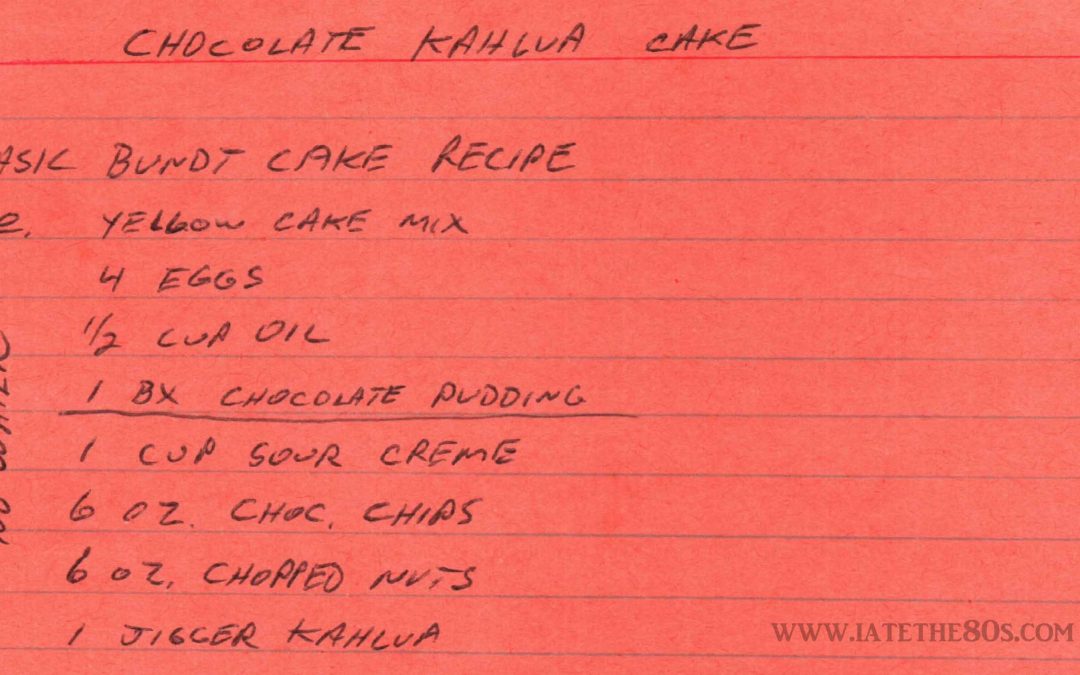 CHOCOLATE KAHLUA CAKE
ASIC BUNDT CAKE RECIPE
e. YELLOW CAKE MIX
4 EGGS
1/2 CUP OIL
1 BX CHOCOLATE PUDDING
1 CUP SOUR CREME
6 OZ. CHOC. CHIPS
6 OZ. CHOPPED NUTS
1 JIGGER KAHLUA
WWW.IATETHE80S.COM